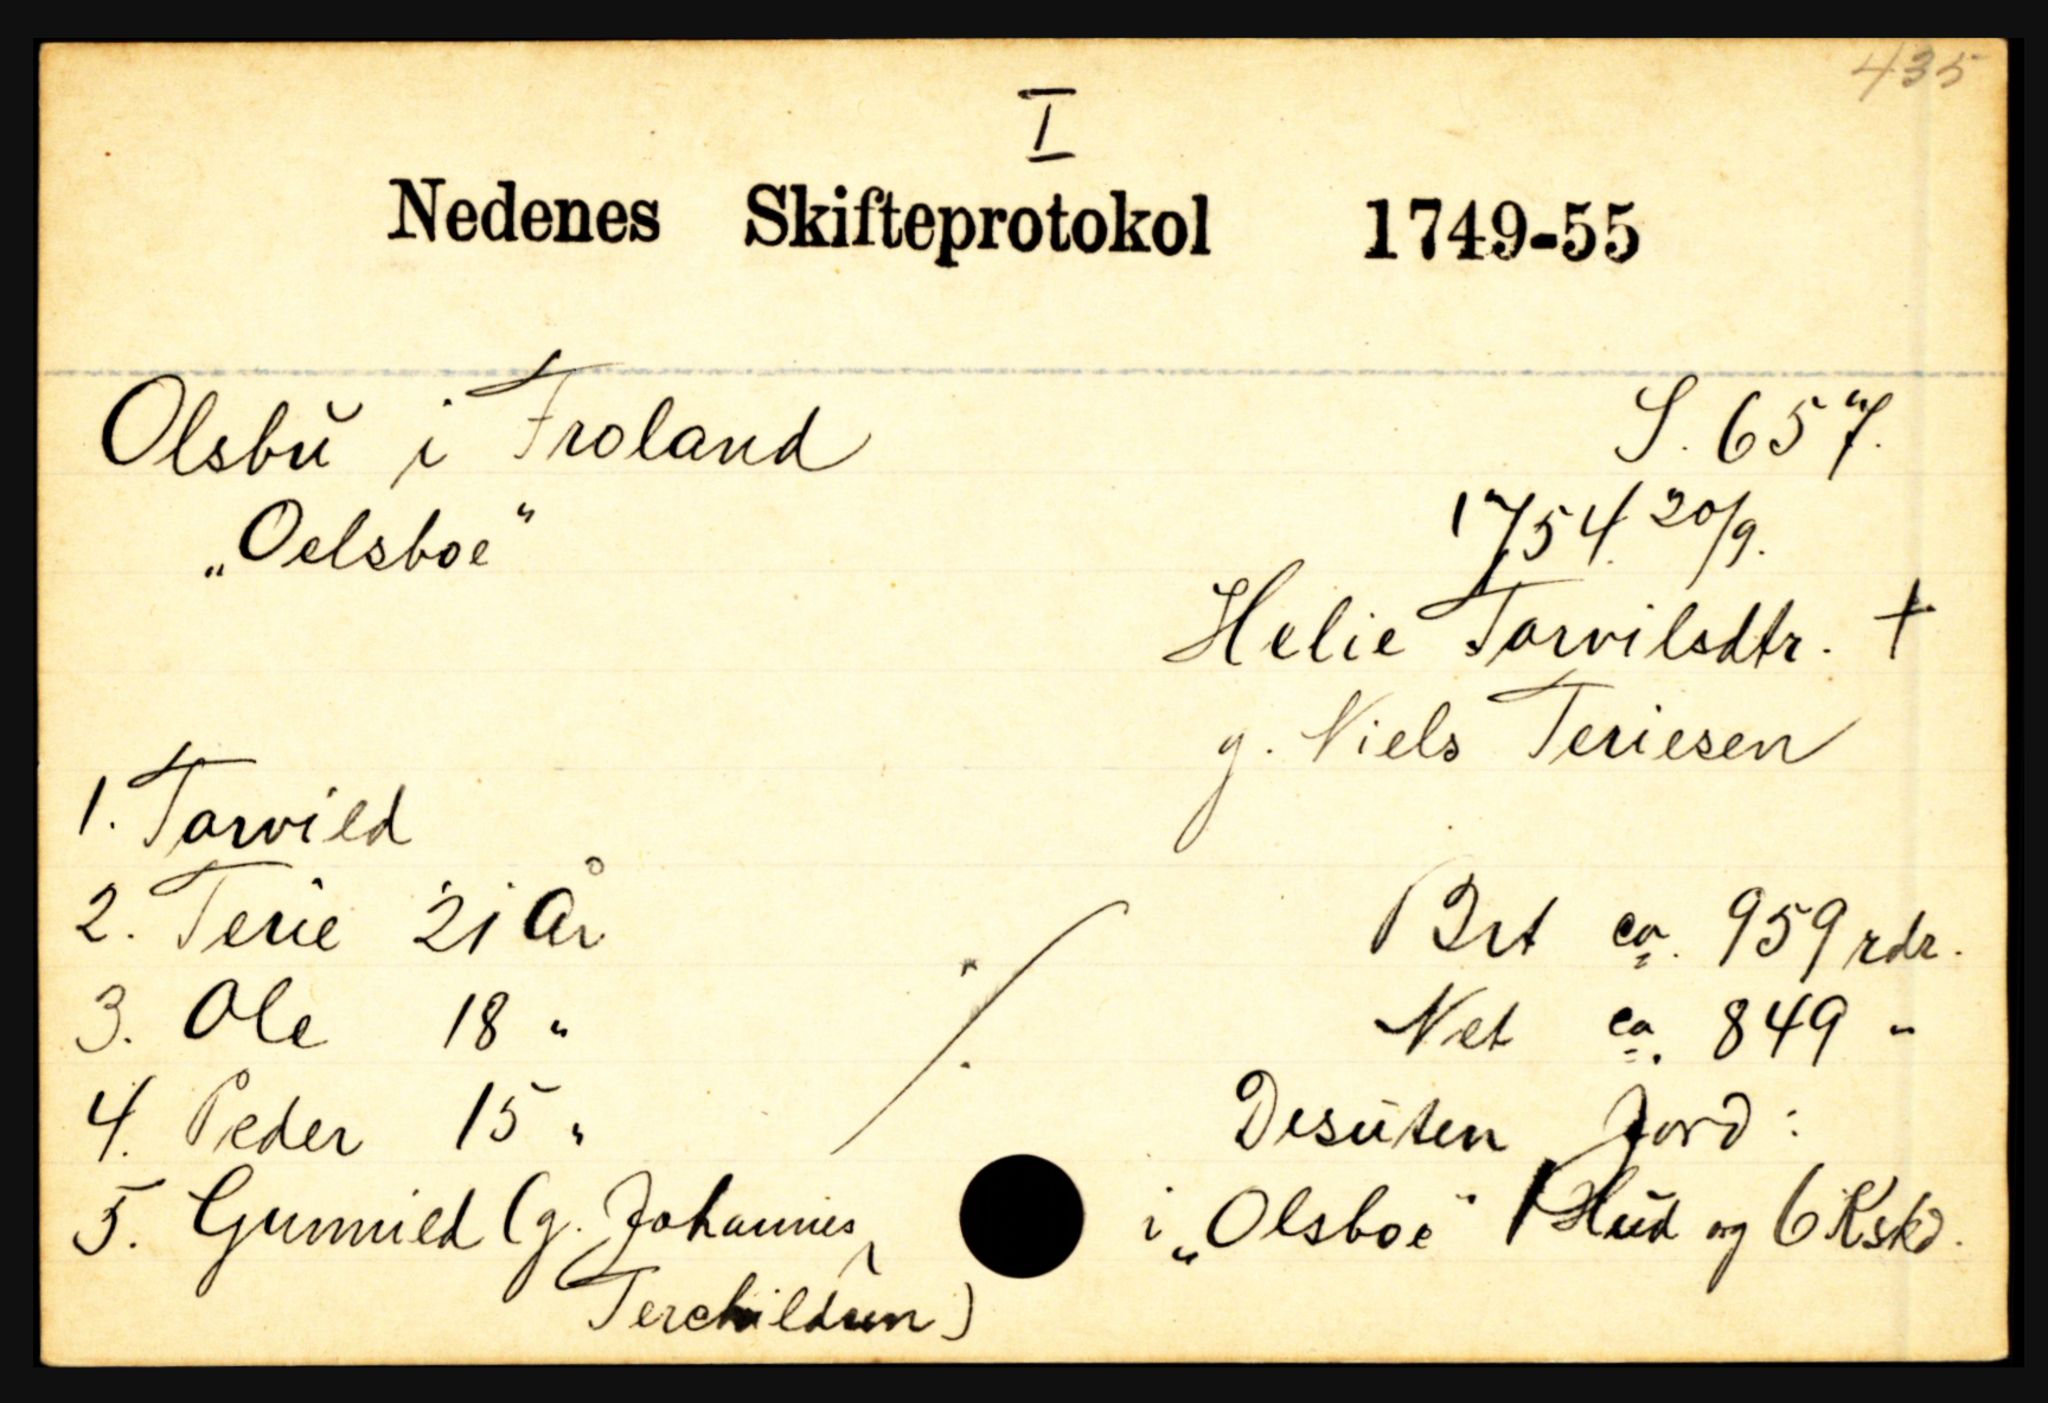 435
I
Nedenes Skifteprotokol 1749-55
Olsbŭ i Froland S. 657.
„Oelsboe" 1754 20/9.
Helie Tarvilsdtr. +
g. Niels Teriesen
1. Tarvild
2. Terie 21 År Brt ca. 959 rdr.
3. Ole 18 " Net ca. 849 "
4. Peder 15 " Desŭten Jord:
5. Gunnild (g. Johannes i „Olsboe" 1 Hŭd og 6 Kskd.
Terchildsen)